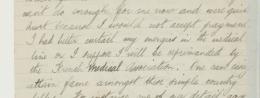 work to enough for one now and were quite
hurt because I would not accept payment
I had better curtail my mergers in the medical
line or I suppose I will be reprimanded by
the French Medical Association. One can soon
attain fame amongst these simple country